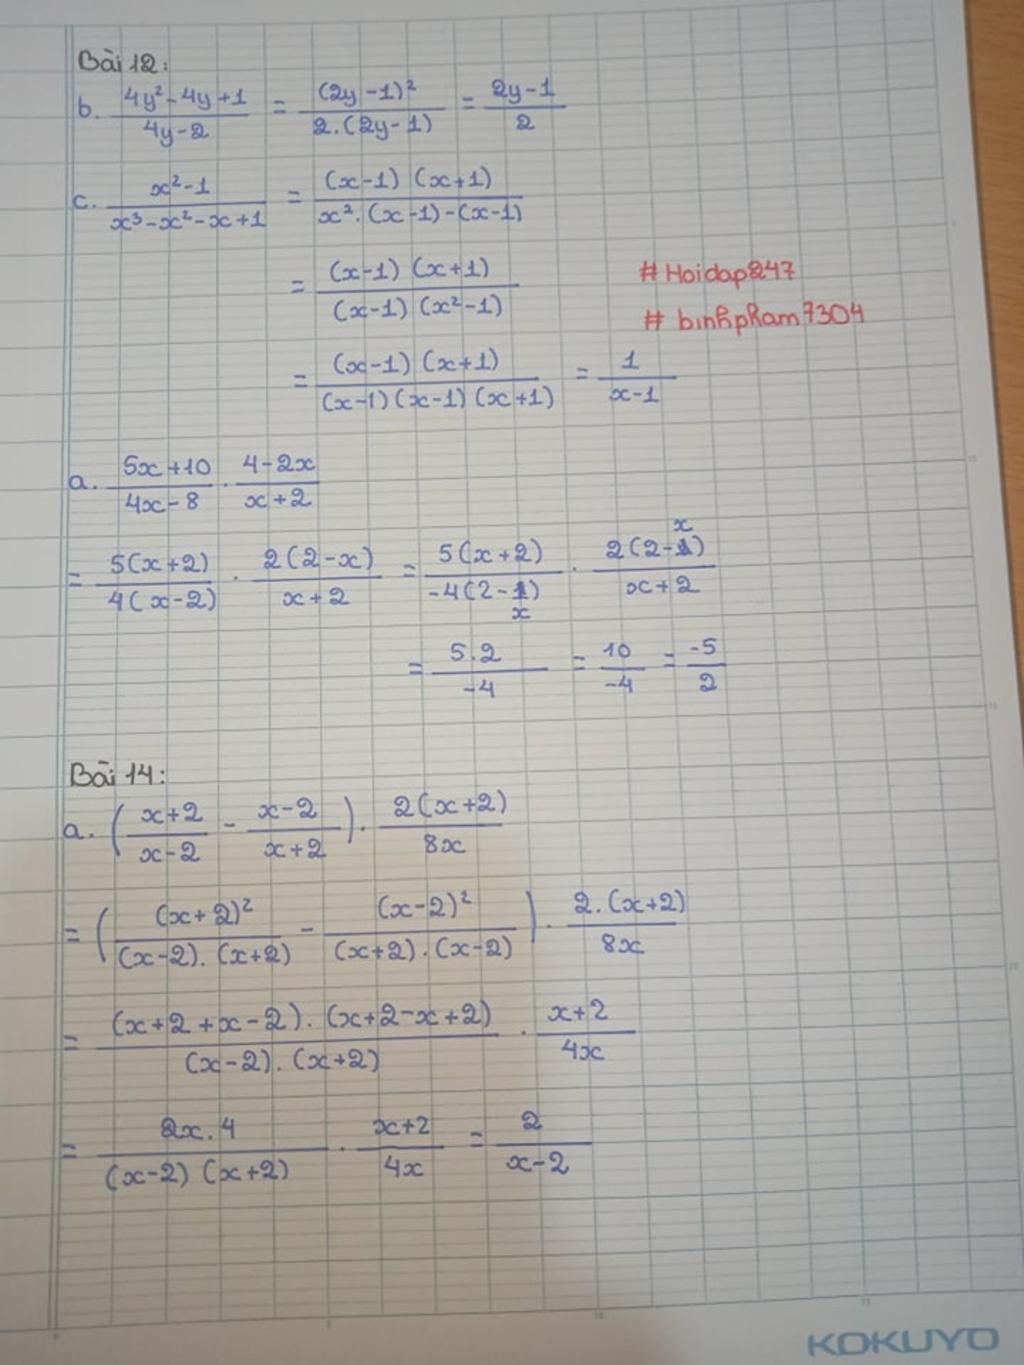 Bài 12:
b. \frac{4y² - 4y + 1}{4y - 2} = \frac{(2y - 1)²}{2.(2y - 1)} = \frac{2y - 1}{2}
c. \frac{x² - 1}{x³ - x² - x + 1} = \frac{(x - 1) (x + 1)}{x².(x - 1) - (x - 1)}
= \frac{(x - 1) (x + 1)}{(x - 1) (x² - 1)}
#Hoidap247
#binhpham7304
= \frac{(x - 1) (x + 1)}{(x - 1) (x - 1) (x + 1)} = \frac{1}{x - 1}
a. \frac{5x + 10}{4x - 8} . \frac{4 - 2x}{x + 2}
= \frac{5(x + 2)}{4(x - 2)} . \frac{2(2 - x)}{x + 2} = \frac{5(x + 2)}{-4(2 - x)} . \frac{2(2 - x)}{x + 2}
= \frac{5.2}{-4} = \frac{10}{-4} = \frac{-5}{2}
Bài 14:
a. (\frac{x + 2}{x - 2} - \frac{x - 2}{x + 2}) . \frac{2(x + 2)}{8x}
= (\frac{(x + 2)²}{(x - 2).(x + 2)} - \frac{(x - 2)²}{(x + 2).(x - 2)}) . \frac{2.(x + 2)}{8x}
= \frac{(x + 2 + x - 2).(x + 2 - x + 2)}{(x - 2).(x + 2)} . \frac{x + 2}{4x}
= \frac{2x.4}{(x - 2) (x + 2)} . \frac{x + 2}{4x} = \frac{2}{x - 2}
KOKUYO